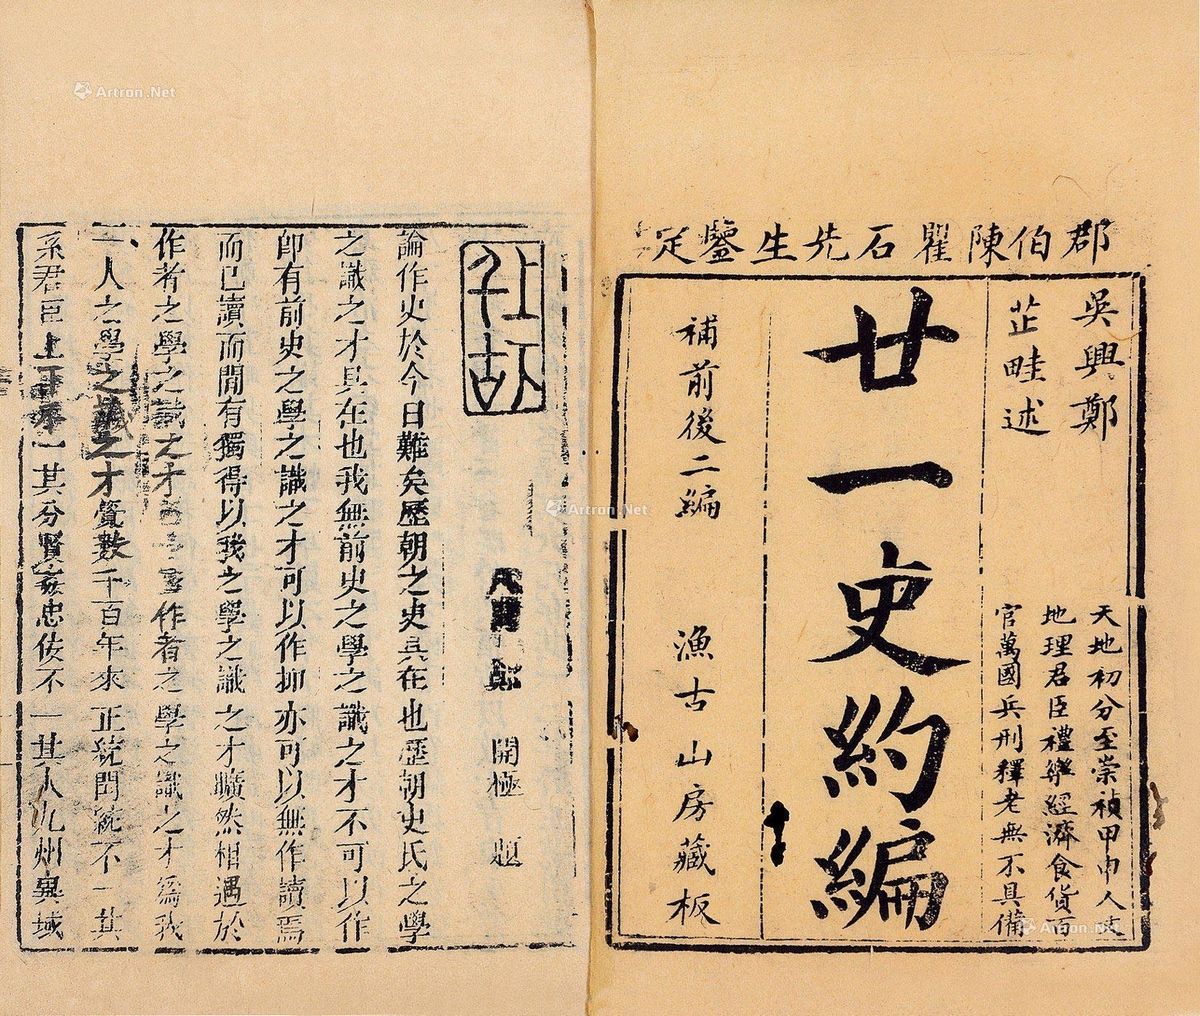 郡伯陳瞿石先生鑒定
吳興鄭
芷畦述
天地初分至崇禎甲申人事
地理君臣禮樂經濟食貨百
官萬國兵刑釋老無不具備
廿一史約編
補前後二編
漁古山房藏板
論作史於今日難矣歷朝之史具在也歷朝史氏之學
之識之才具在也我無前史之學之識之才不可以作
即有前史之學之識之才可以作抑亦可以無作讀焉
而已讀而間有獨得以我之學之識之才曠然相遇於
作者之學之識之才作者之學之識之才為我
一人之學之識之才覽數千百年來正統閏統不一其
系君臣上下不一其分賢奸忠佞不一其人九州異域
鄭開極題
Artron.Net
Artron.Net
Artron.Net